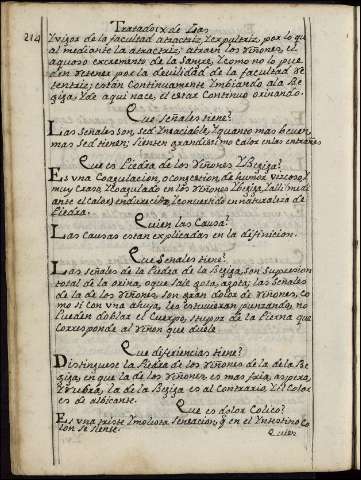 214
Tratado IX de las
Y vigor de la facultad atractriz, y expultriz, por lo qu
al mediante la atractriz; atraen los riñones, el
aquoso excremento de la sangre, y como no lo pue
den retener por la devilidad de la facultad re
tentriz; están continuamente imbiando a la Be
giga, y de aqui nace, el estar continuo orinando.
Que señales tiene?
Las señales son, sed ynsaciable, y quanto mas beuen,
mas sed tienen; sienten grandissimo calor en las entrañas.
Que es Piedra de los riñones y Begiga?
Es vna coagulacion, o congecion, de humor viscoso, y
muy craso, y coagulado en los riñones y begiga, y alli medi
ante el calor, endurecido, y conuertido en naturaleza de
Piedra.
Quien las causa?
Las causas estan explicadas en la difinicion.
Que señales tiene?
Las señales de la Piedra de la Begiga, son supression
total de la orina, o que sale gota, a gota; las señales
de la de los riñones son gran dolor de riñones, co
mo si con vna abuja, les estuuieran punzando, no
pueden doblar el cuerpo, stupor de la pierna que
corresponde al riñon que duele.
Que diferiencias tiene?
Distinguese la Piedra de los riñones de la de la Be
giga, en que la de los riñones es mas fria, aspera,
y rubra, la de la Begiga es al contrario, y el color
es de albicante.
Que es dolor Colico?
Es vna triste y molesta sensacion, q en el yntestino Co
lon se siente.
Quien